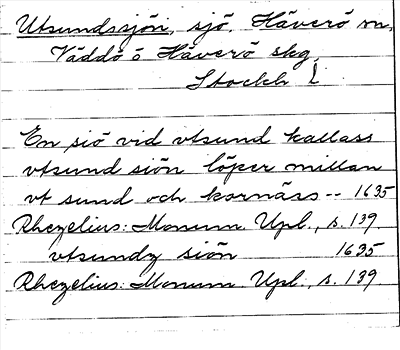 Utsundssjön, sjö. Häverö sn,
Väddö o Häverö skg.
Stockh L
En siö vid vtsund kallass
vtsund siön löper millan
vt sund och kornäss -- 1635
Rhezelius: Monum. Upl., s. 139.
vtsundz siön 1635
Rhezelius: Monum. Upl., s. 139.